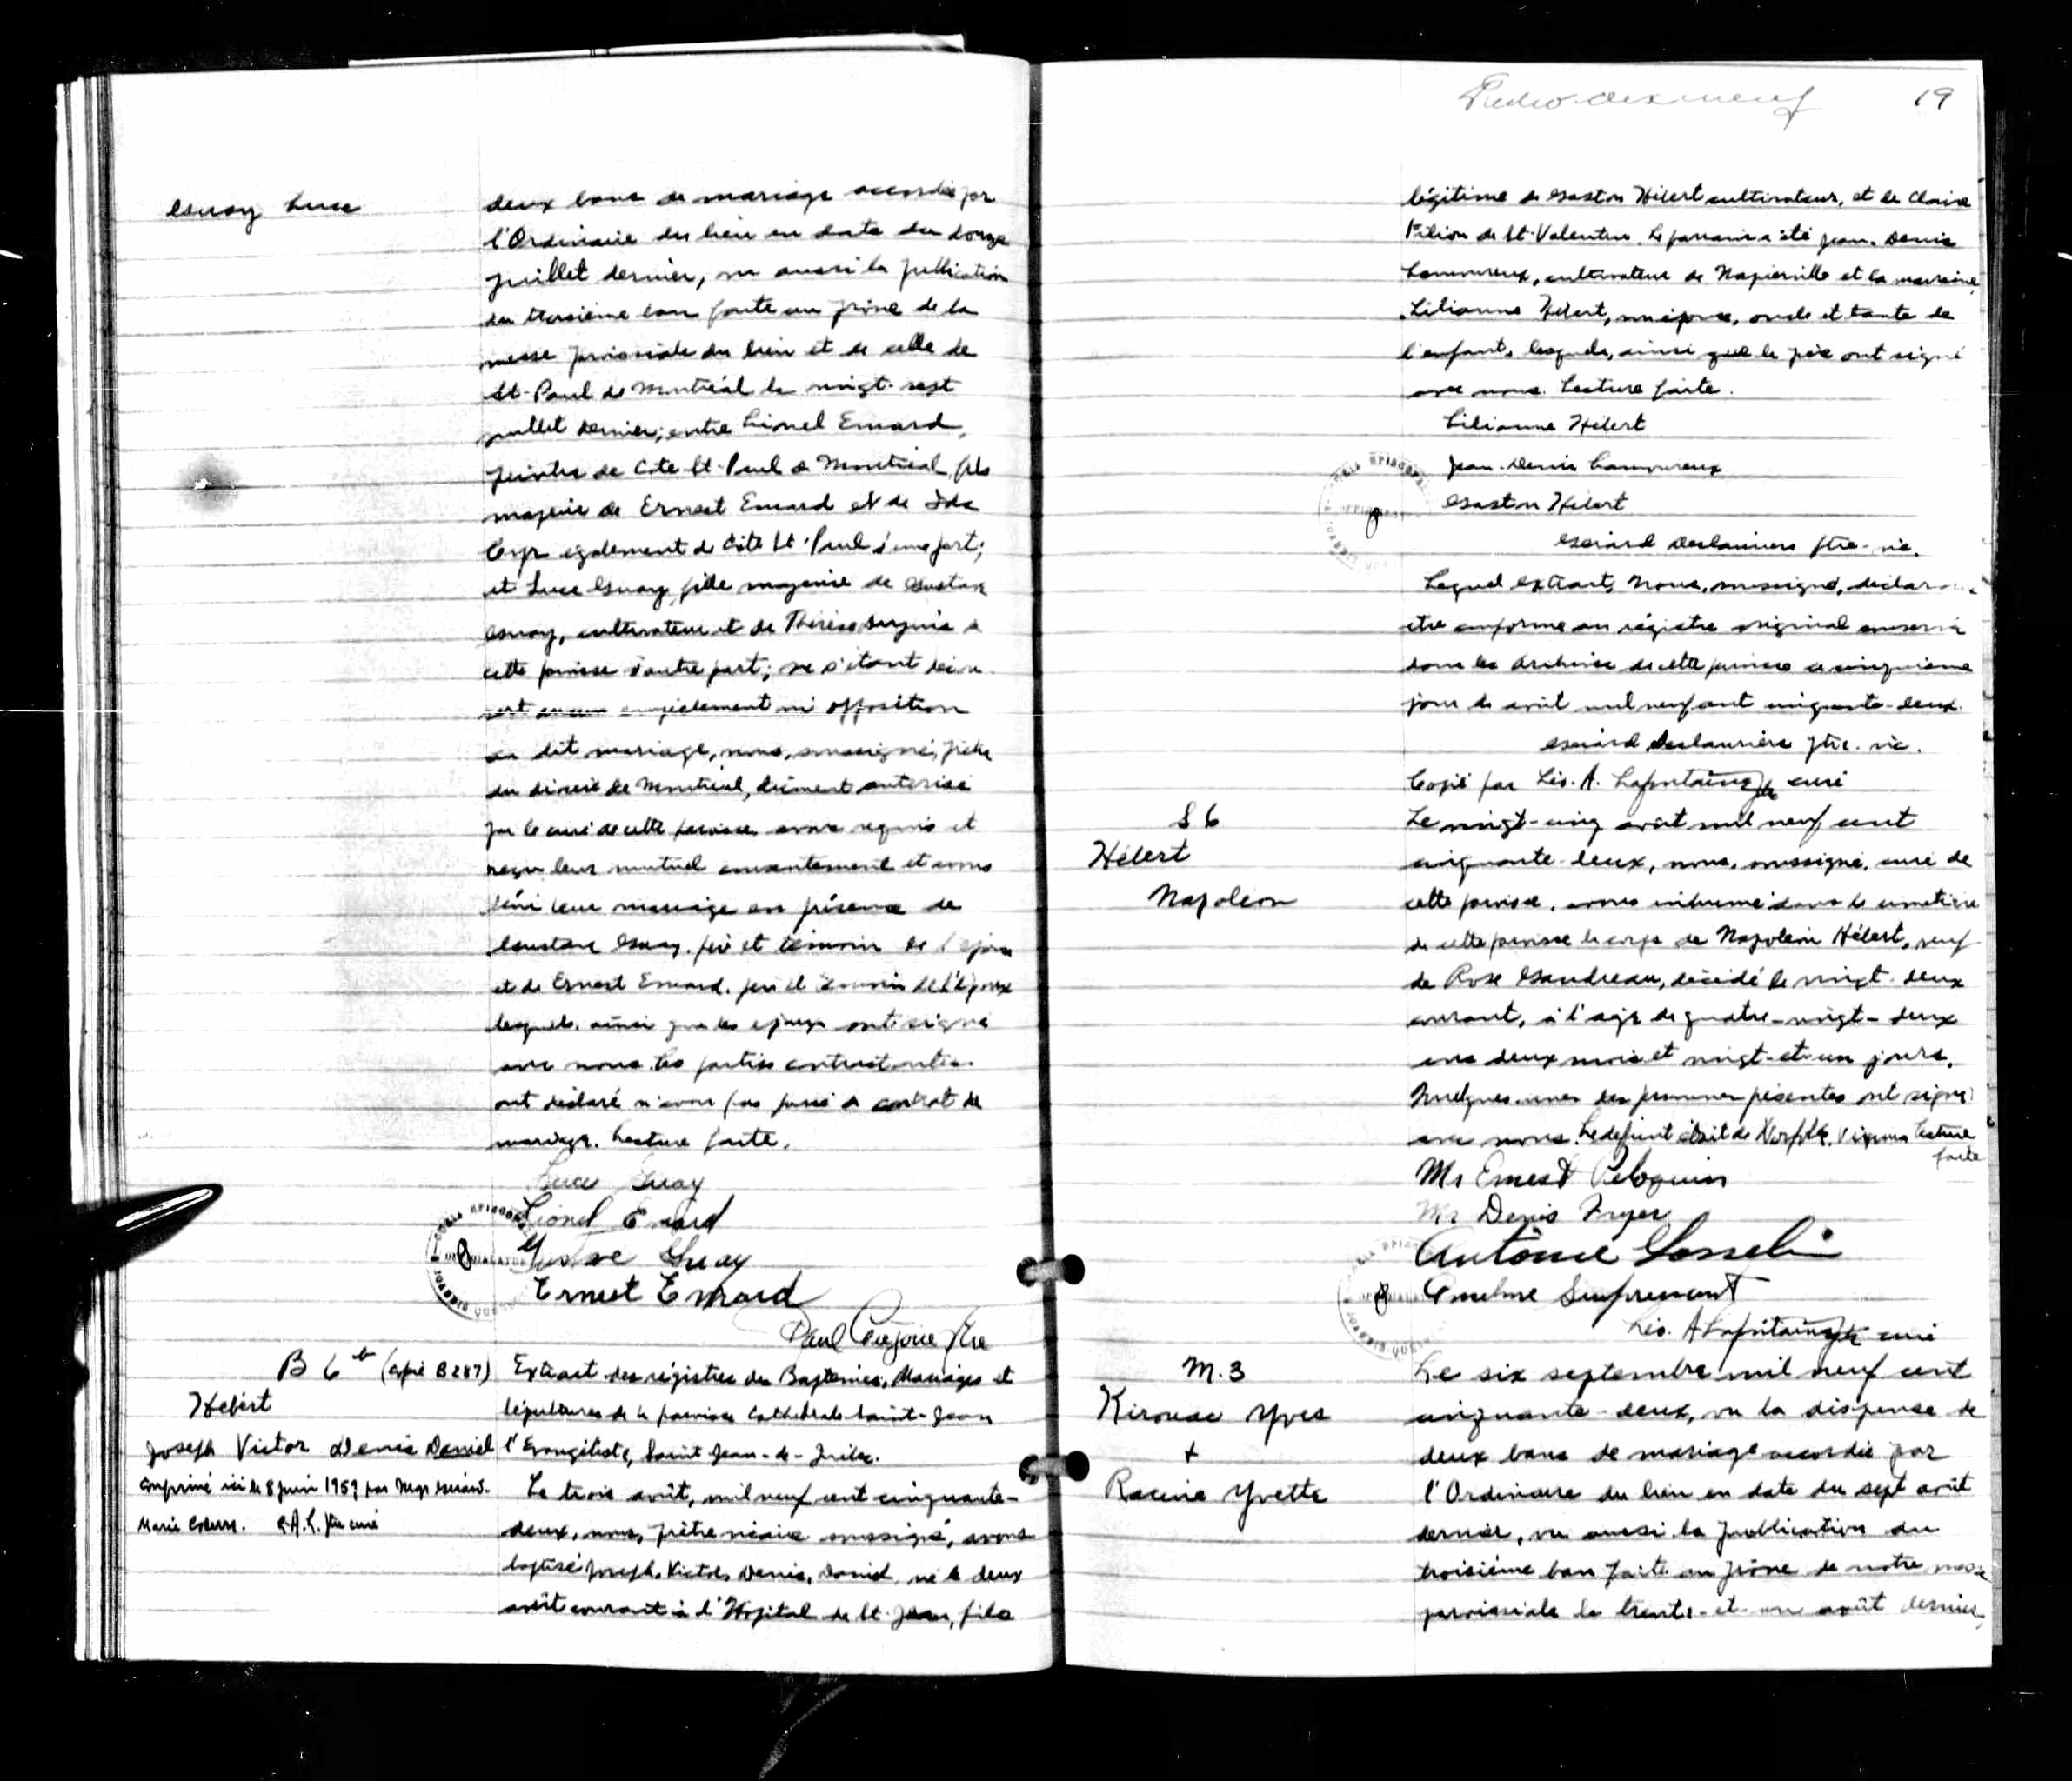 Guay Luce
deux bans de mariage accordée par
l'Ordinaire du lieu en date du douze
juillet dernier, vu aussi la publication
du troisième ban faite au prône de la
messe paroissiale du lieu et de celle de
St-Paul de Montréal le vingt-sept
juillet dernier; entre Lionel Emard,
peintre de Côte St-Paul de Montréal, fils
majeur de Ernest Emard et de Ida
également de Côte St-Paul d'une part;
et Luce Guay, fille majeure de Gustave
Guay, cultivateur et de Thérèse de
cette paroisse d'autre part; ne s'étant décou-
vert aucun empêchement ni opposition
au dit mariage, nous, soussigné, prêtre
du diocèse de Montréal, dûment autorisé
par le curé de cette paroisse, avons requis et
reçu leur mutuel consentement et avons
béni leur mariage en présence de
Gustave Guay, père et témoin de l'épouse
et de Ernest Emard, père et témoin de l'époux
lesquels, ainsi que les époux ont signé
avec nous. Les parties contractantes
ont déclaré n'avoir pas passé de contrat de
mariage. Lecture faite.
Luce Guay
Lionel Emard
Gustave Guay
Ernest Emard
Paul Grégoire ptre
B 6 b (copié B287)
Hébert
Joseph Victor Denis Daniel
Confirmé ici le 8 juin 1959 par Mgr Gérard-
Marie Coderre. L.A.L. ptre curé
Extrait des régistres des Baptêmes, Mariages et
Sépultures de la paroisse Cathédrale Saint-Jean
l'Evangéliste, Saint-Jean-de-Québec.
Le trois août, mil neuf cent cinquante-
deux, nous, prêtre vicaire soussigné, avons
baptisé Joseph, Victor, Denis, Daniel, né le deux
août courant à l'Hôpital de St-Jean, fils
Folio dix-neuf 19
légitime de Gaston Hébert cultivateur, et de Claire
Filion de St-Valentin. Le parrain a été Jean-Denis
Lamoureux, cultivateur de Napierville et la marraine,
Lilianne Hébert, son épouse, oncle et tante de
l'enfant, lesquels, ainsi que le père ont signé
avec nous. Lecture faite.
Lilianne Hébert
Jean-Denis Lamoureux
Gaston Hébert
Gérard Deslauriers ptre-vic.
Lequel extrait, Nous, soussigné, déclarons
être conforme au régistre original conservé
dans les Archives de cette paroisse ce cinquième
jour de août mil neuf cent cinquante-deux.
Gérard Deslauriers ptre. vic.
Copié par Léo. A. Lafontaine ptr curé
S 6
Hébert
Napoléon
Le vingt-cinq août mil neuf cent
cinquante-deux, nous, soussigné, curé de
cette paroisse, avons inhumé dans le cimetière
de cette paroisse le corps de Napoléon Hébert, veuf
de Rose Gaudreau, décédé le vingt-deux
courant, à l'âge de quatre-vingt-deux
ans deux mois et vingt-et-un jours.
Quelques-unes des personnes présentes ont signé
avec nous. Le défunt était de Norfolk, Lecture
faite
Mr Ernest Péloquin
Mr Denis Fryer
Antoine Gosselin
Anselme Surprenant
Léo. A Lafontaine ptr curé
M. 3
Kirouac Yves
+
Racine Yvette
Le six septembre mil neuf cent
cinquante-deux, vu la dispense de
deux bans de mariage accordée par
l'Ordinaire du lieu en date du sept août
dernier, vu aussi la publication du
troisième ban faite au prône de notre messe
paroissiale le trente-et-un août dernier,